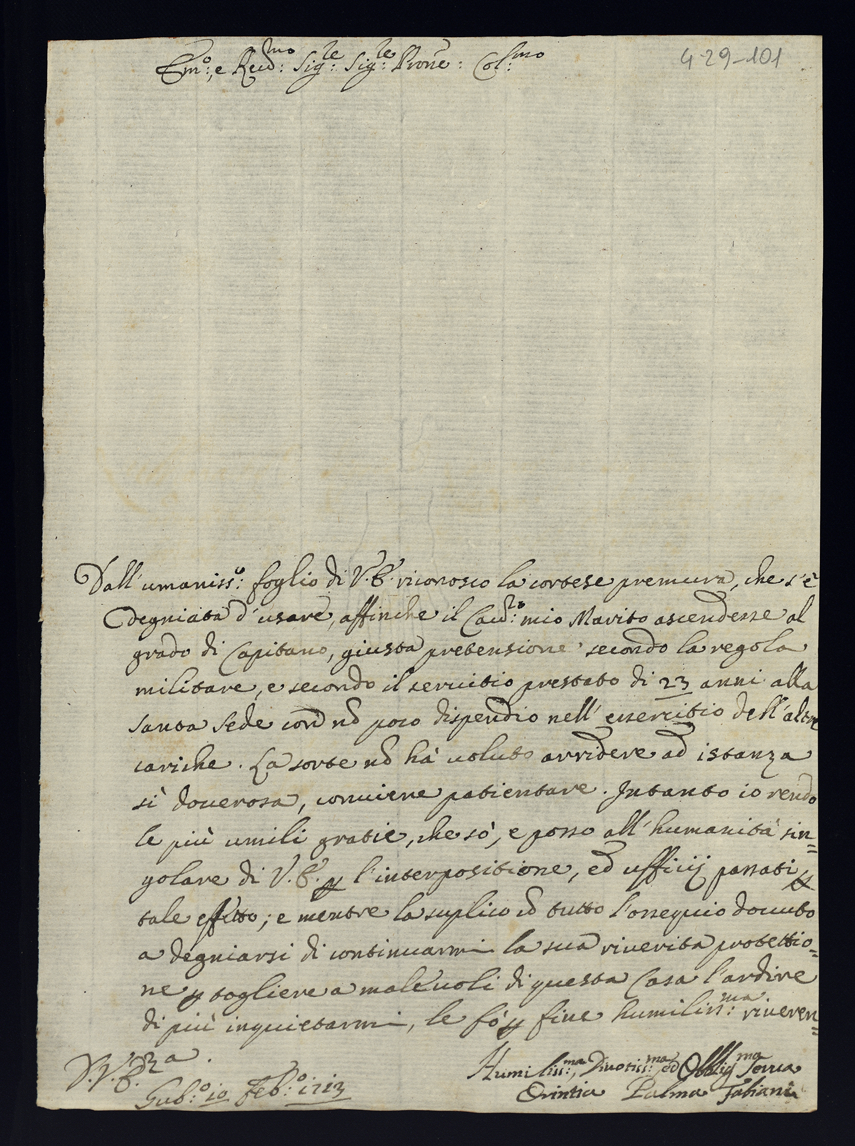 Em:º, e Reu:mo Sig:re Sig:re Prone: Col:mo
4-29-101
Dall'umaniss:º foglio di V.E. riconosco la cortese premura, che s'è
degniata d'usare, affinche il Cau:re mio Marito ascendesse al
grado di Capitano, giusta pretensione secondo la regola
militare, e secondo il seruitio prestato di 23 anni alla
Santa Sede con nõ poco dispendio nell'essercitio dell'altre
cariche. La sorte nõ hà uoluto arridere ad istanza
sì douerosa, conuiene patientare. Intanto io rendo
le più umili gratie, che sò, e posso all'humanità sin=
golare di V.E. p l'interpositione, ed ufficij passati p
tale effetto; e mentre la suplico cõ tutto l'ossequio douuto
a degniarsi di continuarmi la sua riuerita protettio=
ne p togliere a maleuoli di questa Casa l'ardire
di più inquietarmi, le fò p fine humiliss:ma riueren=
za.
D.V.E.
Gub:º 10 Feb:º 1713
Humiliss:ma, Diuotiss:ma ed Obblig:ma Serua
Orintia Palma Fabiani